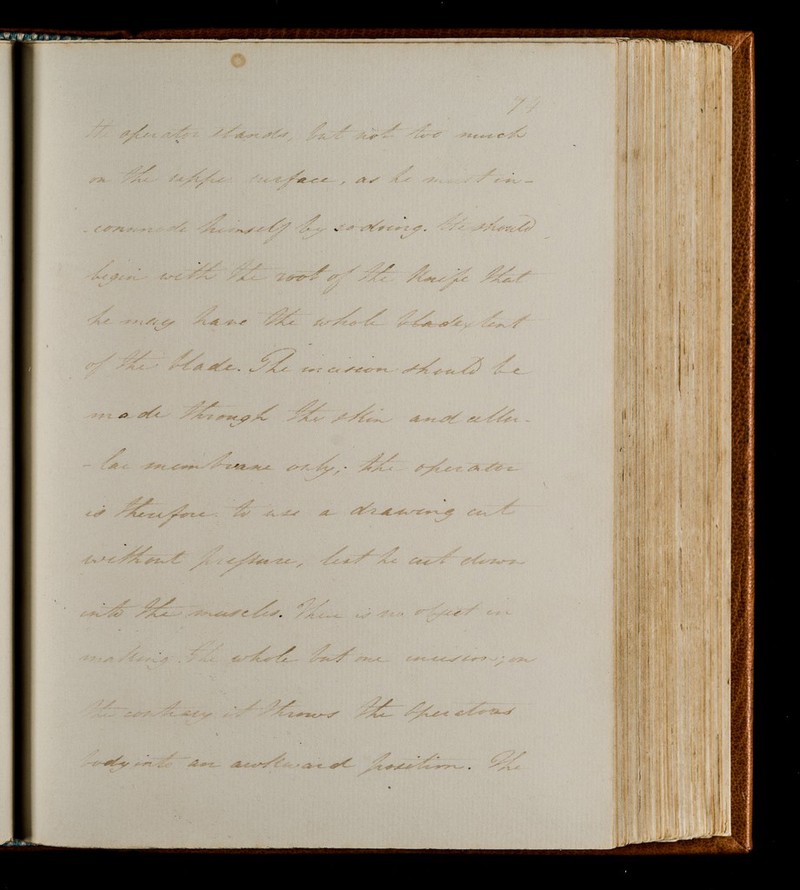 the operator stands, but not too much
on the upper surface, as he must in-
-commode himself by so doing. He should
begin with the root of the Knife that
he may have the whole
of the blade. The incision should be
made through the skin and cellu-
-lar membrane only; the operator
is therefore to use a drawing cut
without pressure, lest he cut down
into the muscles. There is no object in
making the whole but one incision; on
the contrary it throws the Operators
body into an awkward position. The